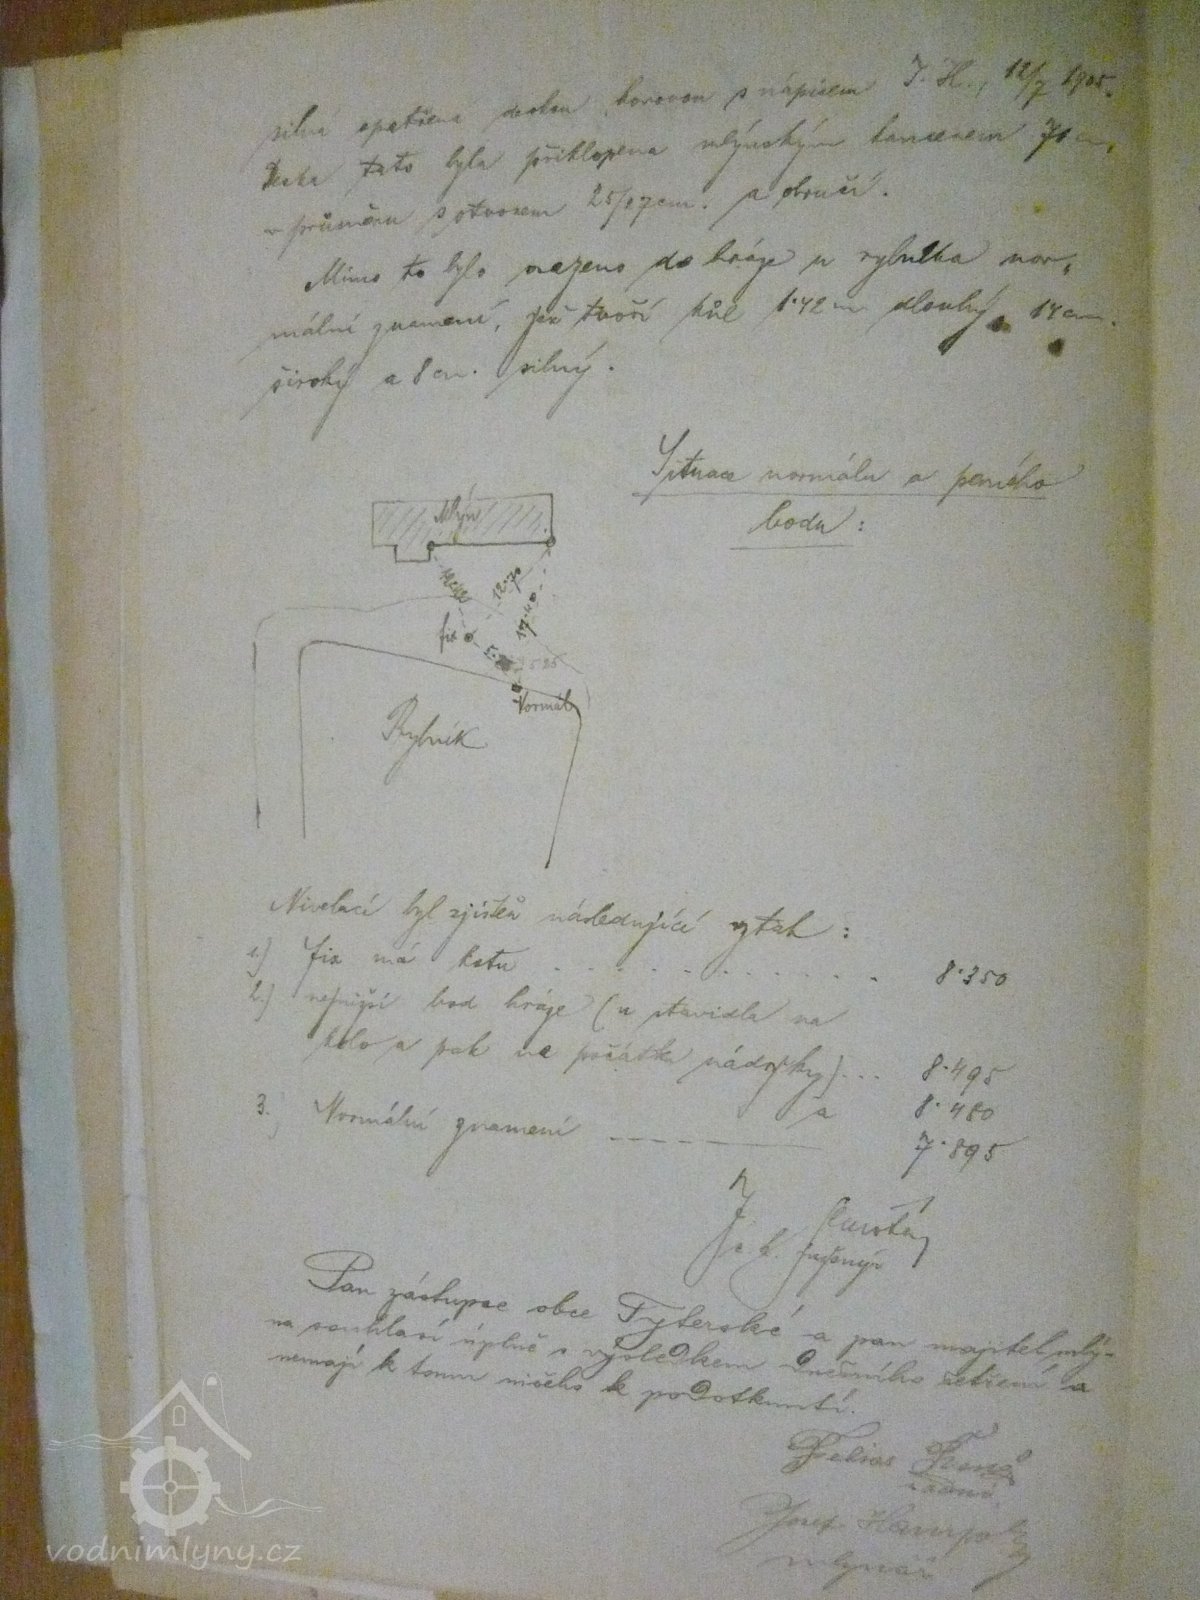 silná opatřena deskou kovovou s nápisem J. H., 12/7 1905.
Deska tato byla přiklopena mlýnským kamenem 70 cm,
v průměru s otvorem 25/17 cm. a obručí.
Mimo to bylo vraženo do hráze u rybníka nor-
mální znamení, jež tvoří kůl 1·42 m dlouhý, 14 cm.
široký a 8 cm. silný.
Situace normálu a pevného
bodu:
Mlýn
12·70
17·40
fix
Normál
Rybník
Nivelací byl zjištěn následující vztah:
1.) fix má kotu 8·350
2.) nejnižší bod hráze (u stavidla na
kolo a pak na počátku nádržky) ... 8·495
a 8·480
3.) Normální znamení 7·895
inženýr
Pan zástupce obce a pan majitel mlý-
na souhlasí úplně s výsledkem dnešního šetření a
nemají k tomu ničeho k podotknutí.
radní
Josef
mlynář
vodnimlyny.cz